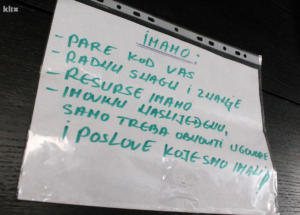 klix
IMAMO:
- PARE KOD VAS
- RADNU SNAGU I ZNANJE
- RESURSE IMAMO
- IMOVINU NASLIJEĐENU,
SAMO TREBA OBNOVITI UGOVORE
I POSLOVE KOJE SMO IMALI